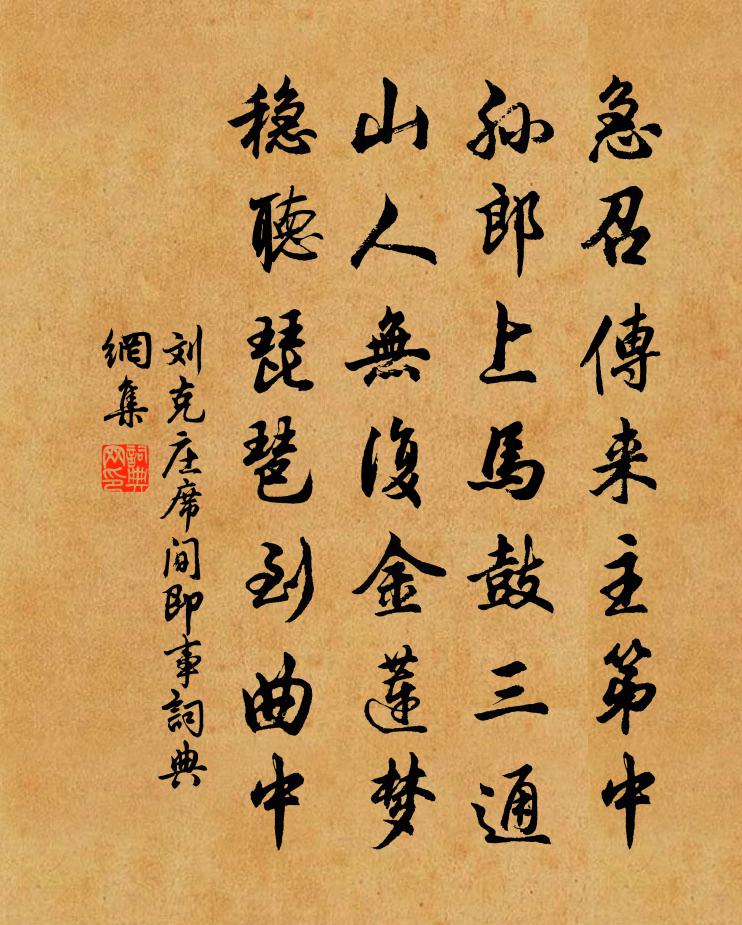 急召傳来主第中
孙郎上馬鼓三通
山人無復金蓮梦
稳聽琵琶到曲中
刘克庄席间即事詞典
網集
詞典
网印